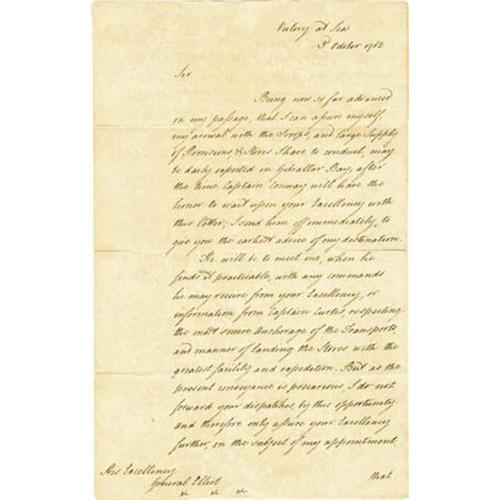 Victory at Sea
3d October 1782
Sir
Being now so far advanced
on my passage, that I can assure myself,
my arrival with the Troops, and large Supply
of Provisions & Stores I have to conduct, may
be daily expected in Gibraltar Bay, after
the time Captain Conway will have the
honor to wait upon your Excellency with
this letter; I send him off immediately, to
give you the earliest advice of my destination.
He will be to meet me, when he
finds it practicable, with any commands
he may receive from your Excellency, or
information from Captain Curtis, respecting
the most secure Anchorage of the Transports,
and manner of landing the Stores with the
greatest facility and expedition. But as the
present conveyance is precarious, I do not
forward your dispatches, by this opportunity
and therefore only assure your Excellency
further, on the subject of my appointment,
His Excellency
General Elliot
that